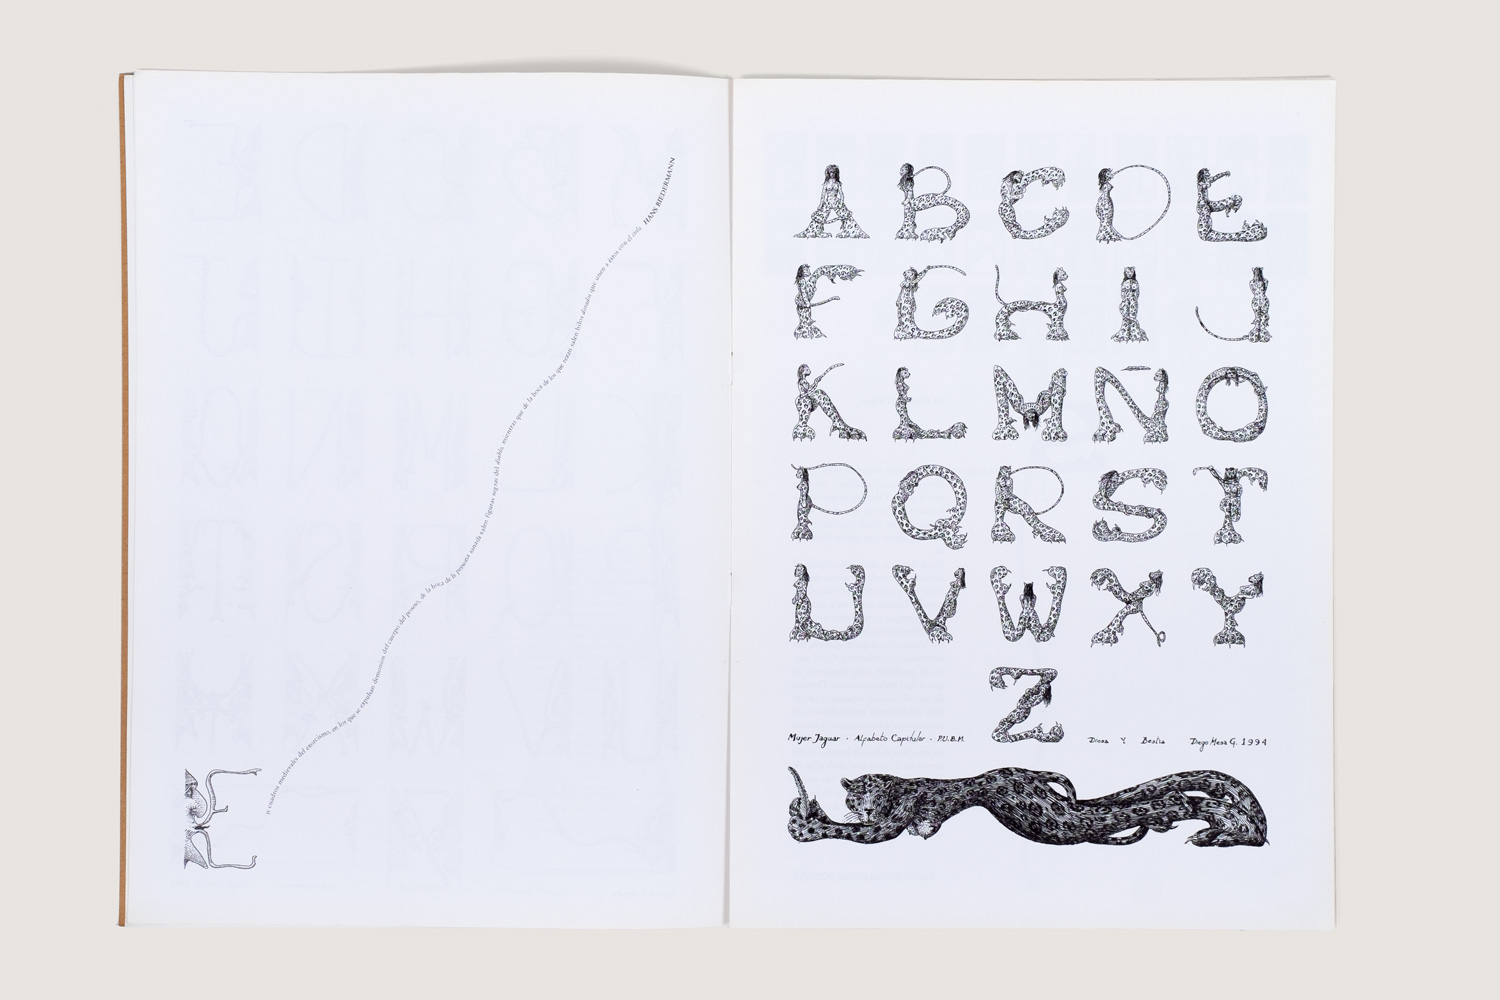 En cuadros medievales del exorcismo, en los que se expulsan demonios del cuerpo del poseso, de la boca de la persona sanada salen figuras negras del diablo, mientras que de la boca de los que rezan salen hilos dorados que unen a éstos con el cielo HANS BIEDERMANN
A B C D E
F G H I J
K L M Ñ O
P Q R S T
U V W X Y
Z
Mujer Jaguar - Alfabeto Capitular - P.U.B.M. Diosa Y Bestia Diego Mesa G. 1994